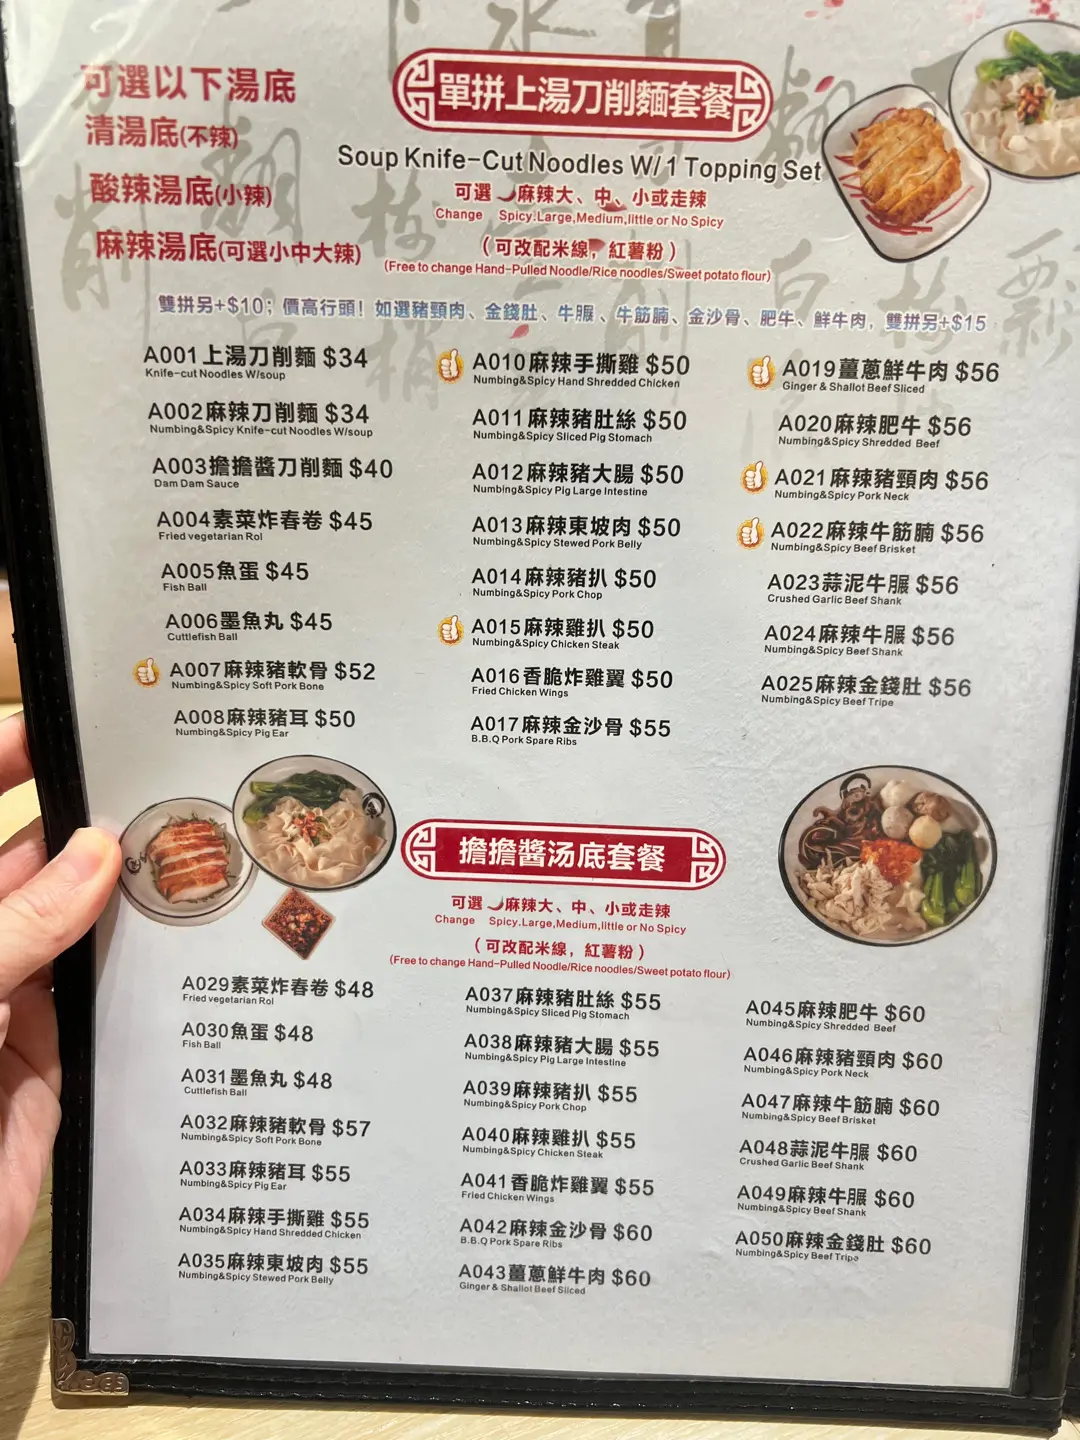 可選以下湯底
清湯底(不辣)
酸辣湯底(小辣)
麻辣湯底(可選小中大辣)
單拼上湯刀削麵套餐
Soup Knife-Cut Noodles W/1 Topping Set
可選 麻辣大、中、小或走辣
Change Spicy.Large,Medium,little or No Spicy
(可改配米線，紅薯粉)
(Free to change Hand-Pulled Noodle/Rice noodles/Sweet potato flour)
雙拼另+$10；價高行頭！如選豬頸肉、金錢肚、牛𦟌、牛筋腩、金沙骨、肥牛、鮮牛肉，雙拼另+$15
A001上湯刀削麵 $34
Knife-cut Noodles W/soup
A002麻辣刀削麵 $34
Numbing&Spicy Knife-cut Noodles W/soup
A003擔擔醬刀削麵 $40
Dam Dam Sauce
A004素菜炸春卷 $45
Fried vegetarian Rol
A005魚蛋 $45
Fish Ball
A006墨魚丸 $45
Cuttlefish Ball
A007麻辣豬軟骨 $52
Numbing&Spicy Soft Pork Bone
A008麻辣豬耳 $50
Numbing&Spicy Pig Ear
A010麻辣手撕雞 $50
Numbing&Spicy Hand Shredded Chicken
A011麻辣豬肚絲 $50
Numbing&Spicy Sliced Pig Stomach
A012麻辣豬大腸 $50
Numbing&Spicy Pig Large Intestine
A013麻辣東坡肉 $50
Numbing&Spicy Stewed Pork Belly
A014麻辣豬扒 $50
Numbing&Spicy Pork Chop
A015麻辣雞扒 $50
Numbing&Spicy Chicken Steak
A016香脆炸雞翼 $50
Fried Chicken Wings
A017麻辣金沙骨 $55
B.B.Q Pork Spare Ribs
A019薑蔥鮮牛肉 $56
Ginger & Shallot Beef Sliced
A020麻辣肥牛 $56
Numbing&Spicy Shredded Beef
A021麻辣豬頸肉 $56
Numbing&Spicy Pork Neck
A022麻辣牛筋腩 $56
Numbing&Spicy Beef Brisket
A023蒜泥牛𦟌 $56
Crushed Garlic Beef Shank
A024麻辣牛𦟌 $56
Numbing&Spicy Beef Shank
A025麻辣金錢肚 $56
Numbing&Spicy Beef Tripe
擔擔醬汤底套餐
可選 麻辣大、中、小或走辣
Change Spicy.Large,Medium,little or No Spicy
(可改配米線，紅薯粉)
(Free to change Hand-Pulled Noodle/Rice noodles/Sweet potato flour)
A029素菜炸春卷 $48
Fried vegetarian Rol
A030魚蛋 $48
Fish Ball
A031墨魚丸 $48
Cuttlefish Ball
A032麻辣豬軟骨 $57
Numbing&Spicy Soft Pork Bone
A033麻辣豬耳 $55
Numbing&Spicy Pig Ear
A034麻辣手撕雞 $55
Numbing&Spicy Hand Shredded Chicken
A035麻辣東坡肉 $55
Numbing&Spicy Stewed Pork Belly
A037麻辣豬肚絲 $55
Numbing&Spicy Sliced Pig Stomach
A038麻辣豬大腸 $55
Numbing&Spicy Pig Large Intestine
A039麻辣豬扒 $55
Numbing&Spicy Pork Chop
A040麻辣雞扒 $55
Numbing&Spicy Chicken Steak
A041香脆炸雞翼 $55
Fried Chicken Wings
A042麻辣金沙骨 $60
B.B.Q Pork Spare Ribs
A043薑蔥鮮牛肉 $60
Ginger & Shallot Beef Sliced
A045麻辣肥牛 $60
Numbing&Spicy Shredded Beef
A046麻辣豬頸肉 $60
Numbing&Spicy Pork Neck
A047麻辣牛筋腩 $60
Numbing&Spicy Beef Brisket
A048蒜泥牛𦟌 $60
Crushed Garlic Beef Shank
A049麻辣牛𦟌 $60
Numbing&Spicy Beef Shank
A050麻辣金錢肚 $60
Numbing&Spicy Beef Tripe